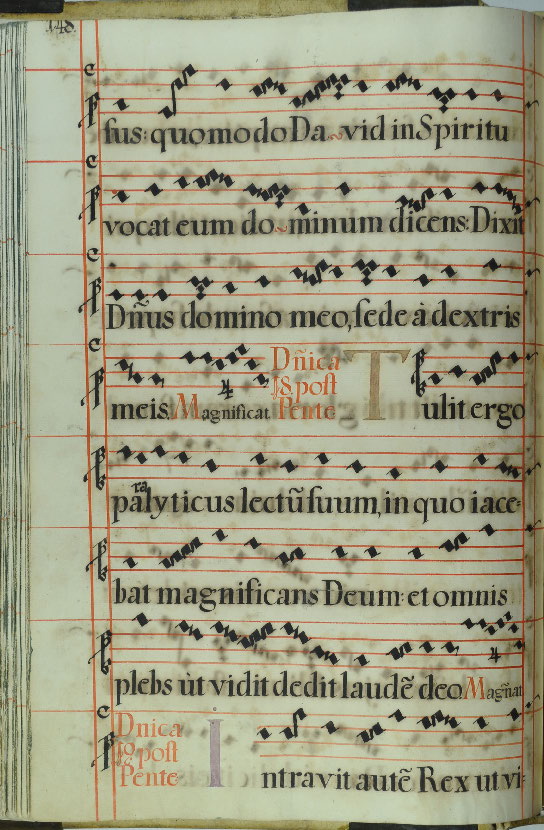 148.
sus: quomodo Da~vid in Spiritu
vocat eum do~minum dicens: Dixit
Dñus domino meo, sede à dextris
meis. Magnificat. Dñica 18 post Pente Tulit ergo
paralyticus lectũ suum, in quo iace-
bat magnificans Deum: et omnis
plebs ùt vidit dedit laudẽ deo. Magñat
Dnica 19 post Pente- Intravit autẽ Rex ut vi-